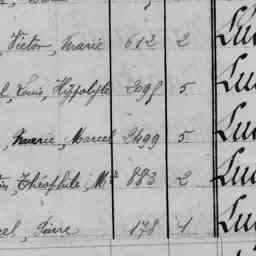 , Victor, Marie 612 2 Lu
, Louis, Hyppolyte 5 Lu
, Marie, Marcel 2499 5 Lu
, Théophile, Mie 883 2 Lu
, Pierre 178 4 Lu